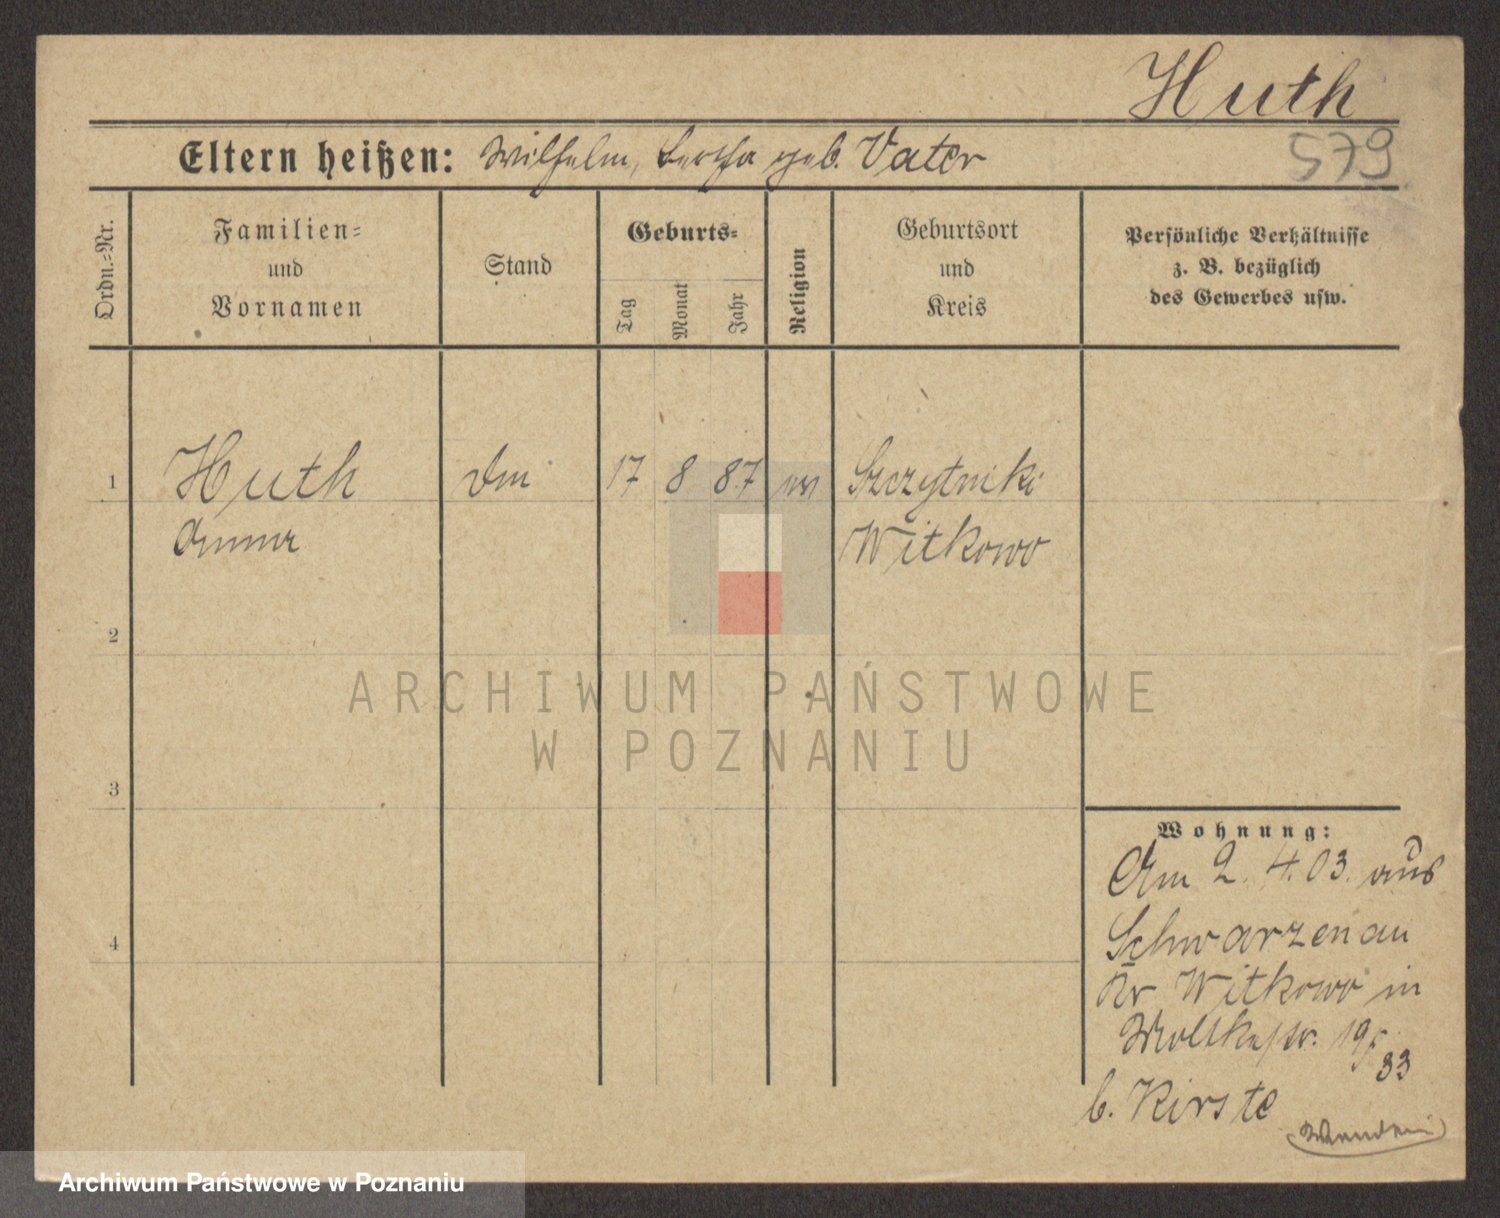 Huth
579
Eltern heißen: Wilhelm, Bertha geb. Vater
Ordn.-Nr.
Familien-
und
Vornamen
Stand
Geburts-
Tag
Monat
Jahr
Religion
Geburtsort
und
Kreis
Persönliche Verhältnisse
z. B. bezüglich
des Gewerbes usw.
1 Huth 17 8 87 ev Szczytniki
Anna Witkowo
2
3
4
ARCHIWUM PAŃSTWOWE
W POZNANIU
Wohnung:
Am 2. 4. 03. aus
Schwarzenau
Kr Witkowo in
Moltkestr. 19/
33
b. Kirste
Archiwum Państwowe w Poznaniu